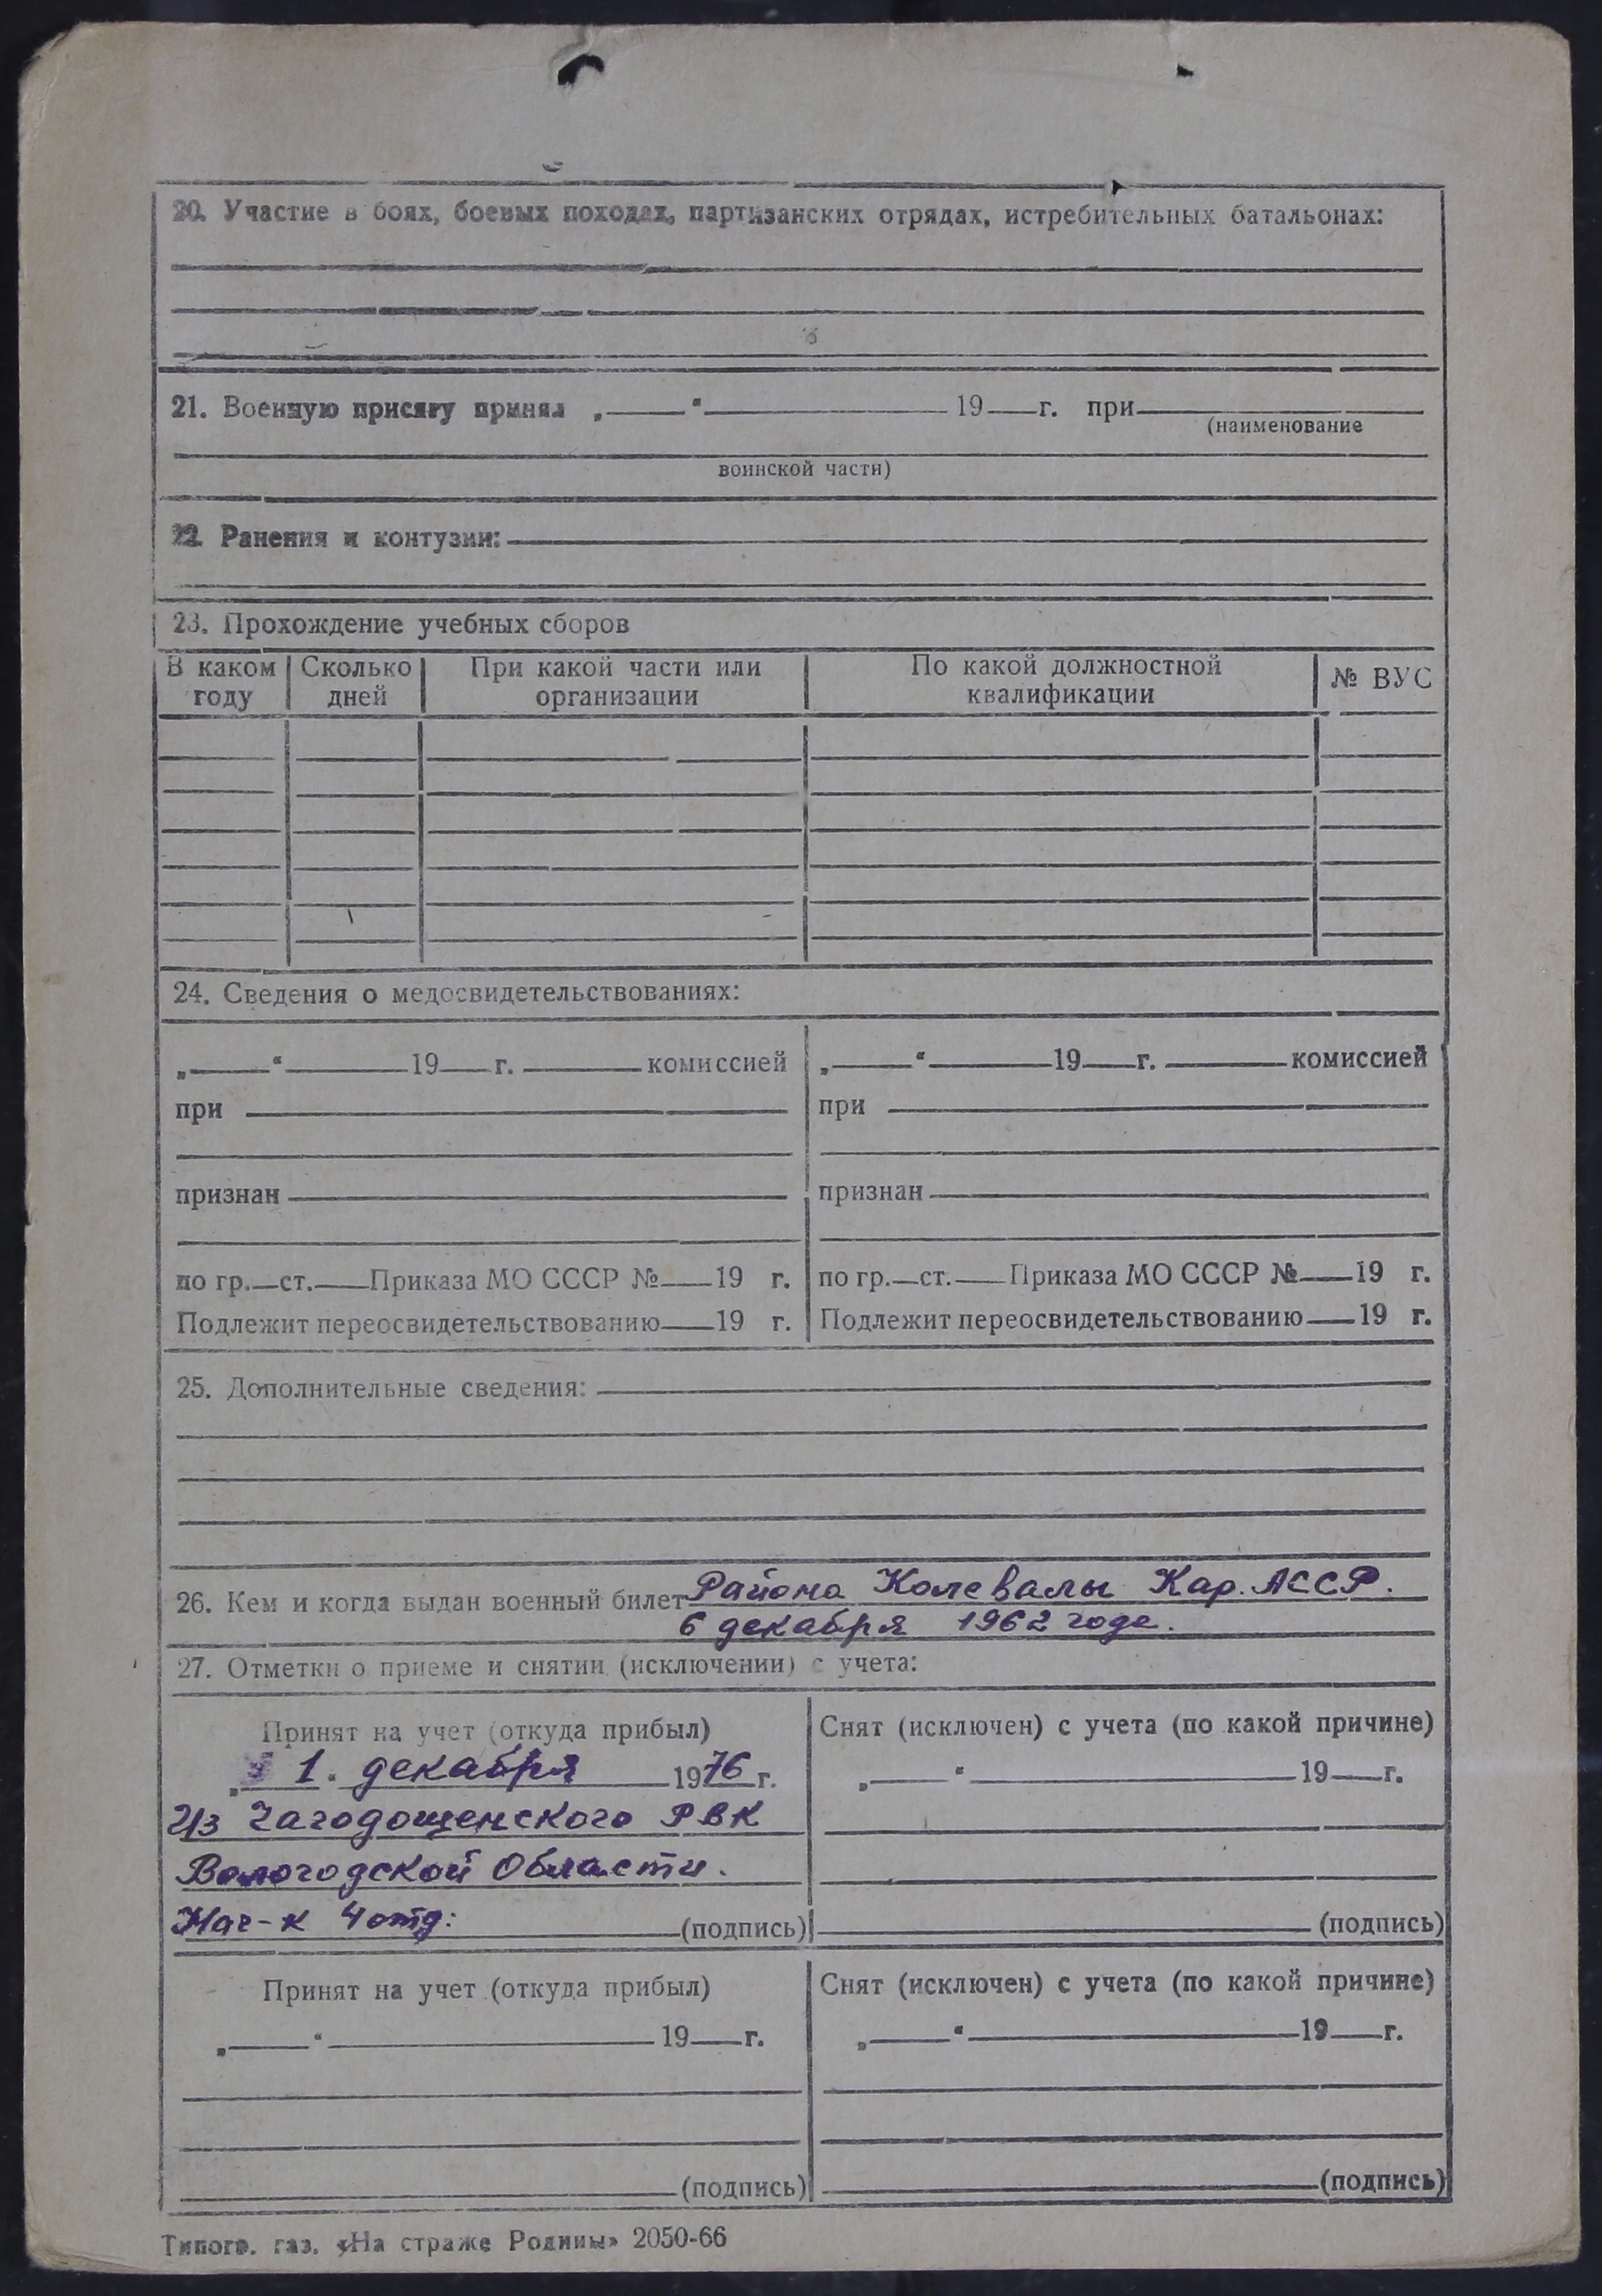 20. Участие в боях, боевых походах, партизанских отрядах, истребительных батальонах:
21. Военную присягу принял „ “ 19 г. при
(наименование
воинской части)
22. Ранения и контузии:
23. Прохождение учебных сборов
В каком году Сколько дней При какой части или организации По какой должностной квалификации № ВУС
24. Сведения о медосвидетельствованиях:
„ “ 19 г. комиссией „ “ 19 г. комиссией
при при
признан признан
по гр. ст. Приказа МО СССР № 19 г. по гр. ст. Приказа МО СССР № 19 г.
Подлежит переосвидетельствованию 19 г. Подлежит переосвидетельствованию 19 г.
25. Дополнительные сведения:
26. Кем и когда выдан военный билет Района Колевалы Кар. АССР.
6 декабря 1962 года.
27. Отметки о приеме и снятии (исключении) с учета:
Принят на учет (откуда прибыл) Снят (исключен) с учета (по какой причине)
„ 1. декабря 1976 г. „ “ 19 г.
Из Чагодощенского РВК
Вологодской Области.
Нач-к 4 отд: (подпись) (подпись)
Принят на учет (откуда прибыл) Снят (исключен) с учета (по какой причине)
„ “ 19 г. „ “ 19 г.
(подпись) (подпись)
Типогр. газ. «На страже Родины» 2050-66